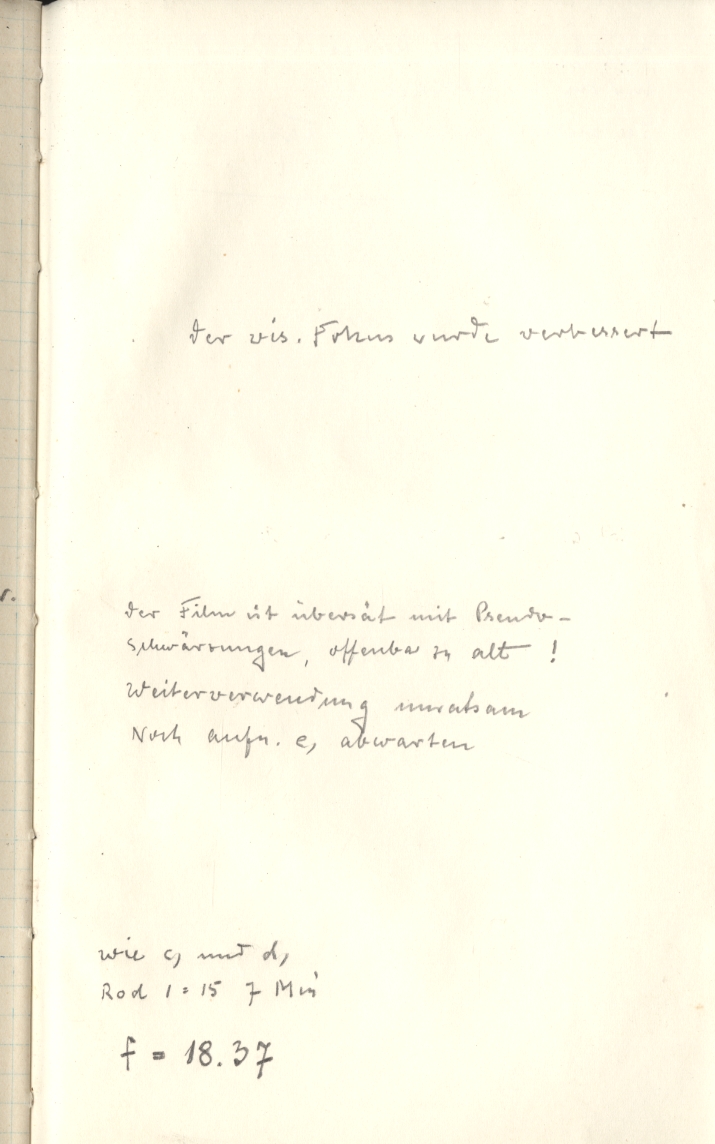 der vis. Fokus wurde verbessert
r.
der Film ist übersät mit Pseudo-
schwärzungen, offenbar zu alt !
Weiterverwendung unratsam
Noch aufn. e, abwarten
wie c, und d,
Rod 1 = 15 7 Min
f = 18.37